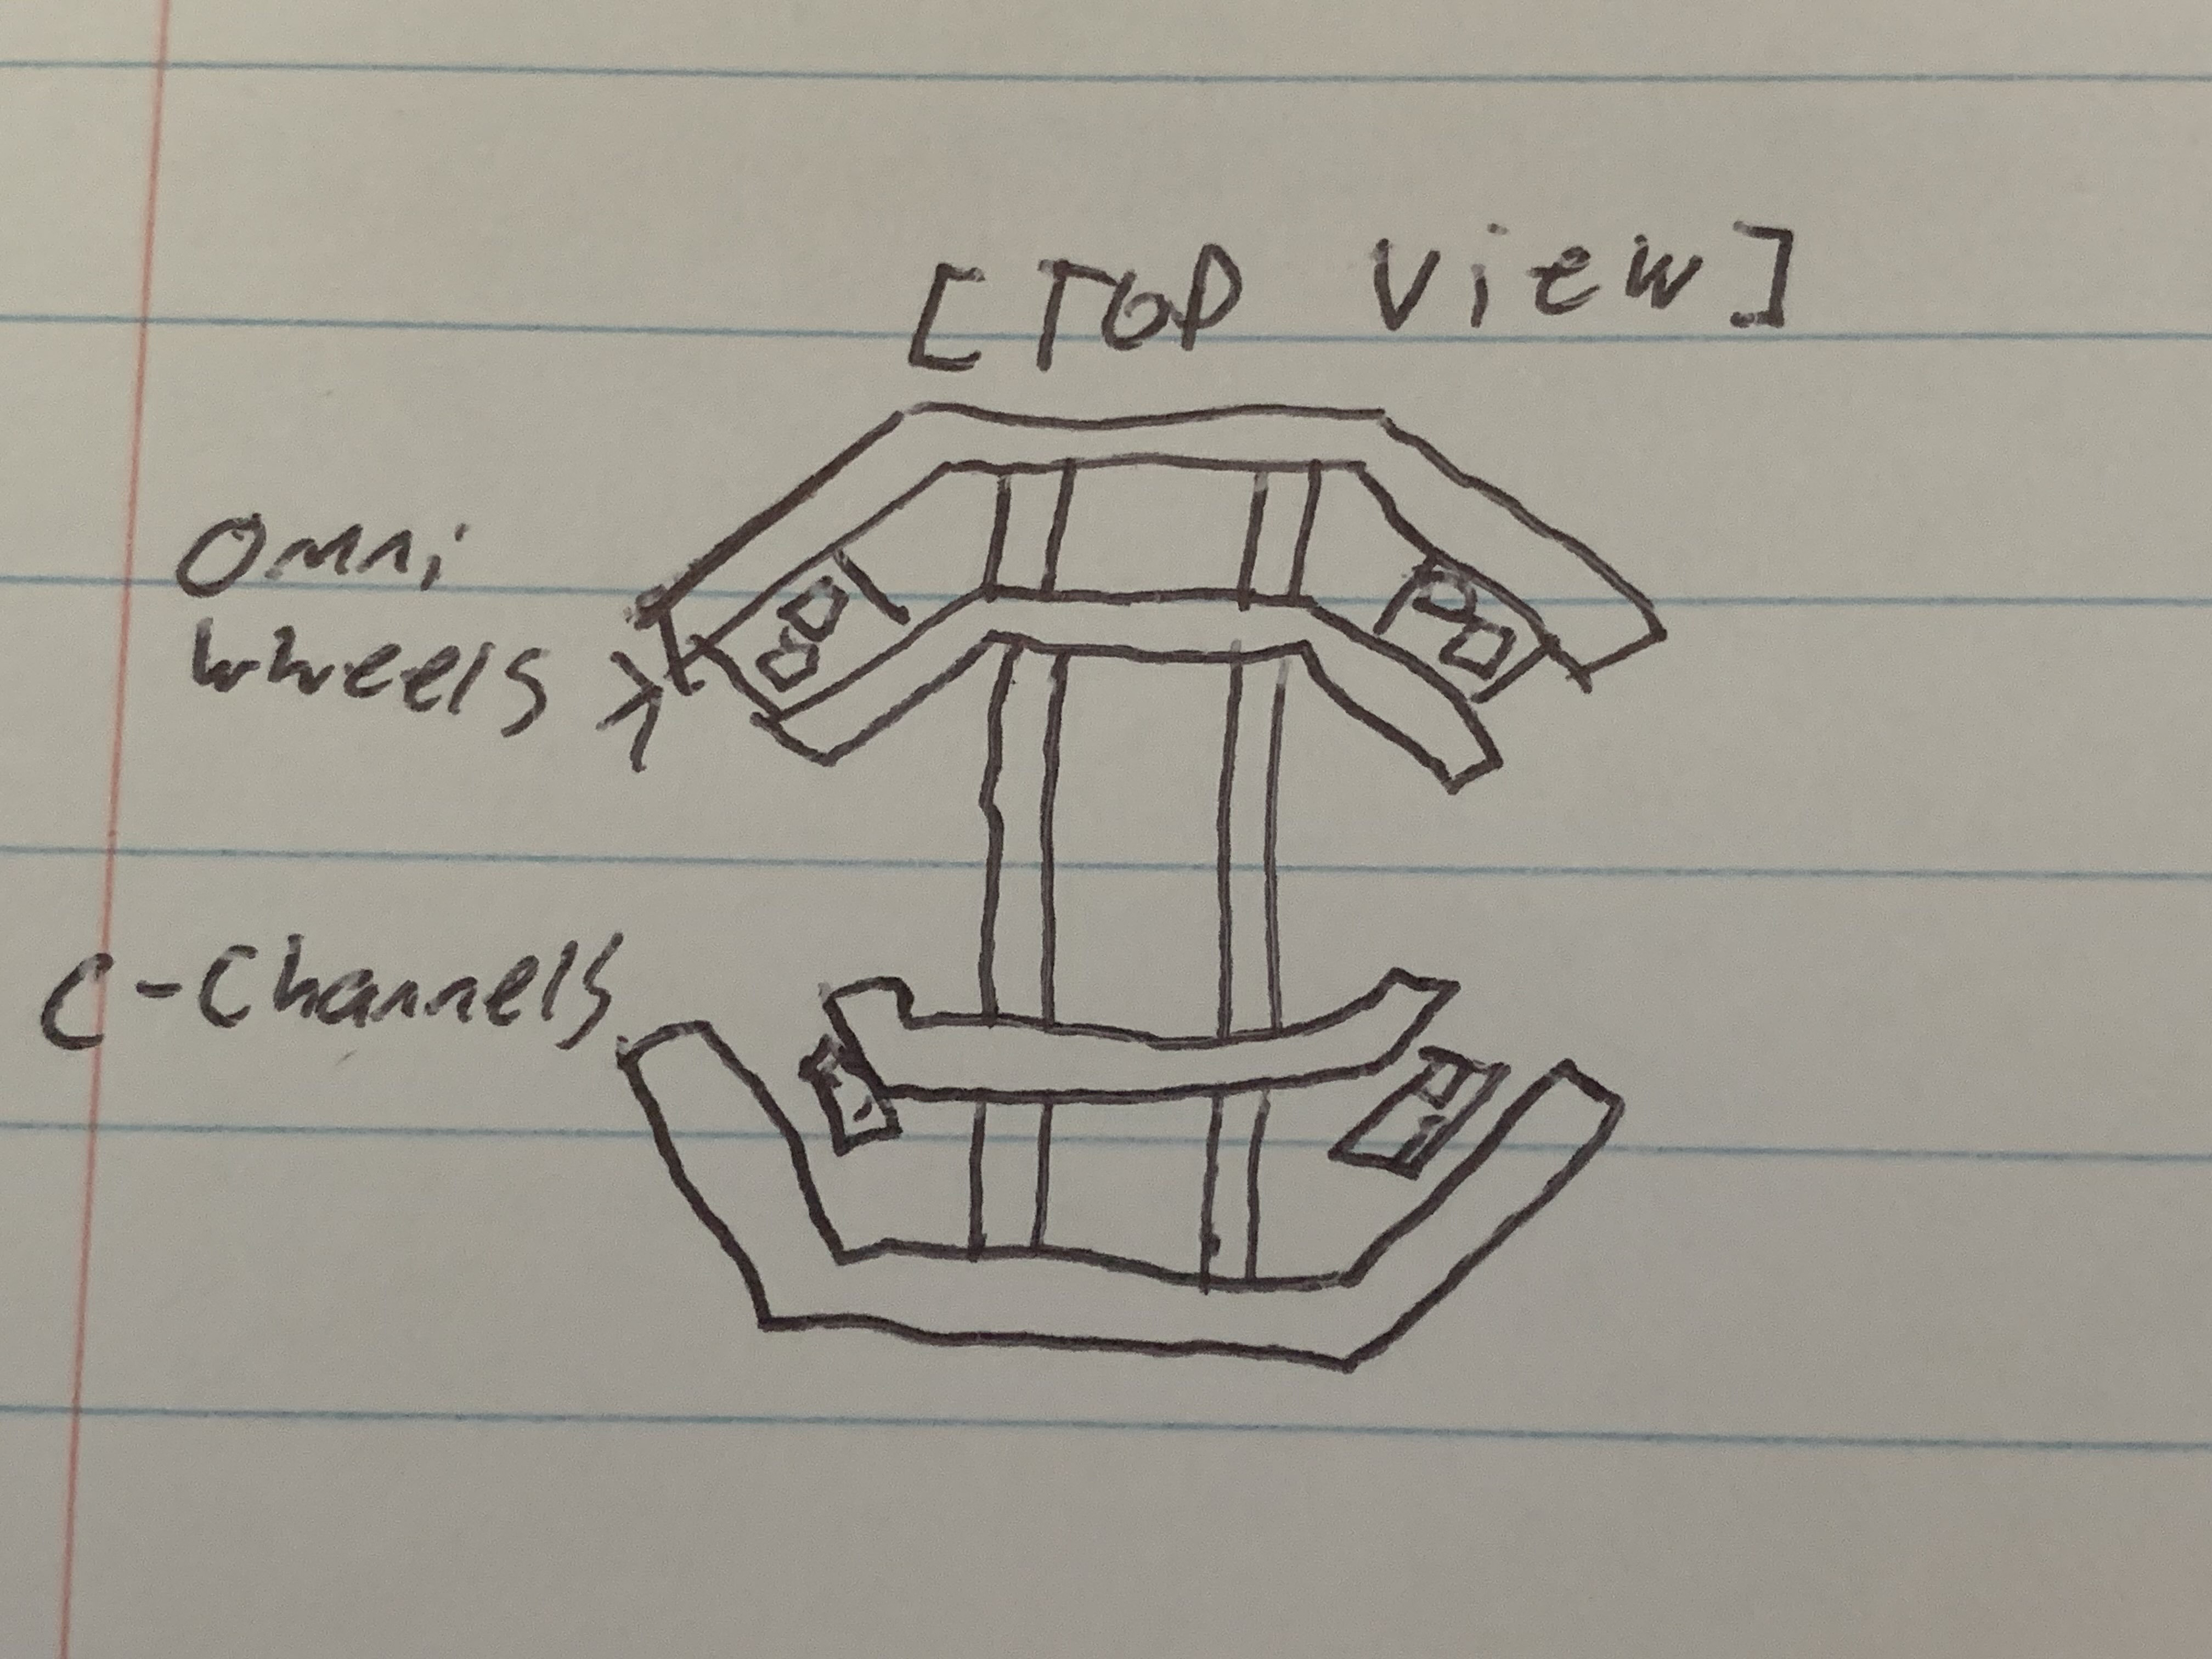 [TOP View]
Omni
wheels
C-Channels